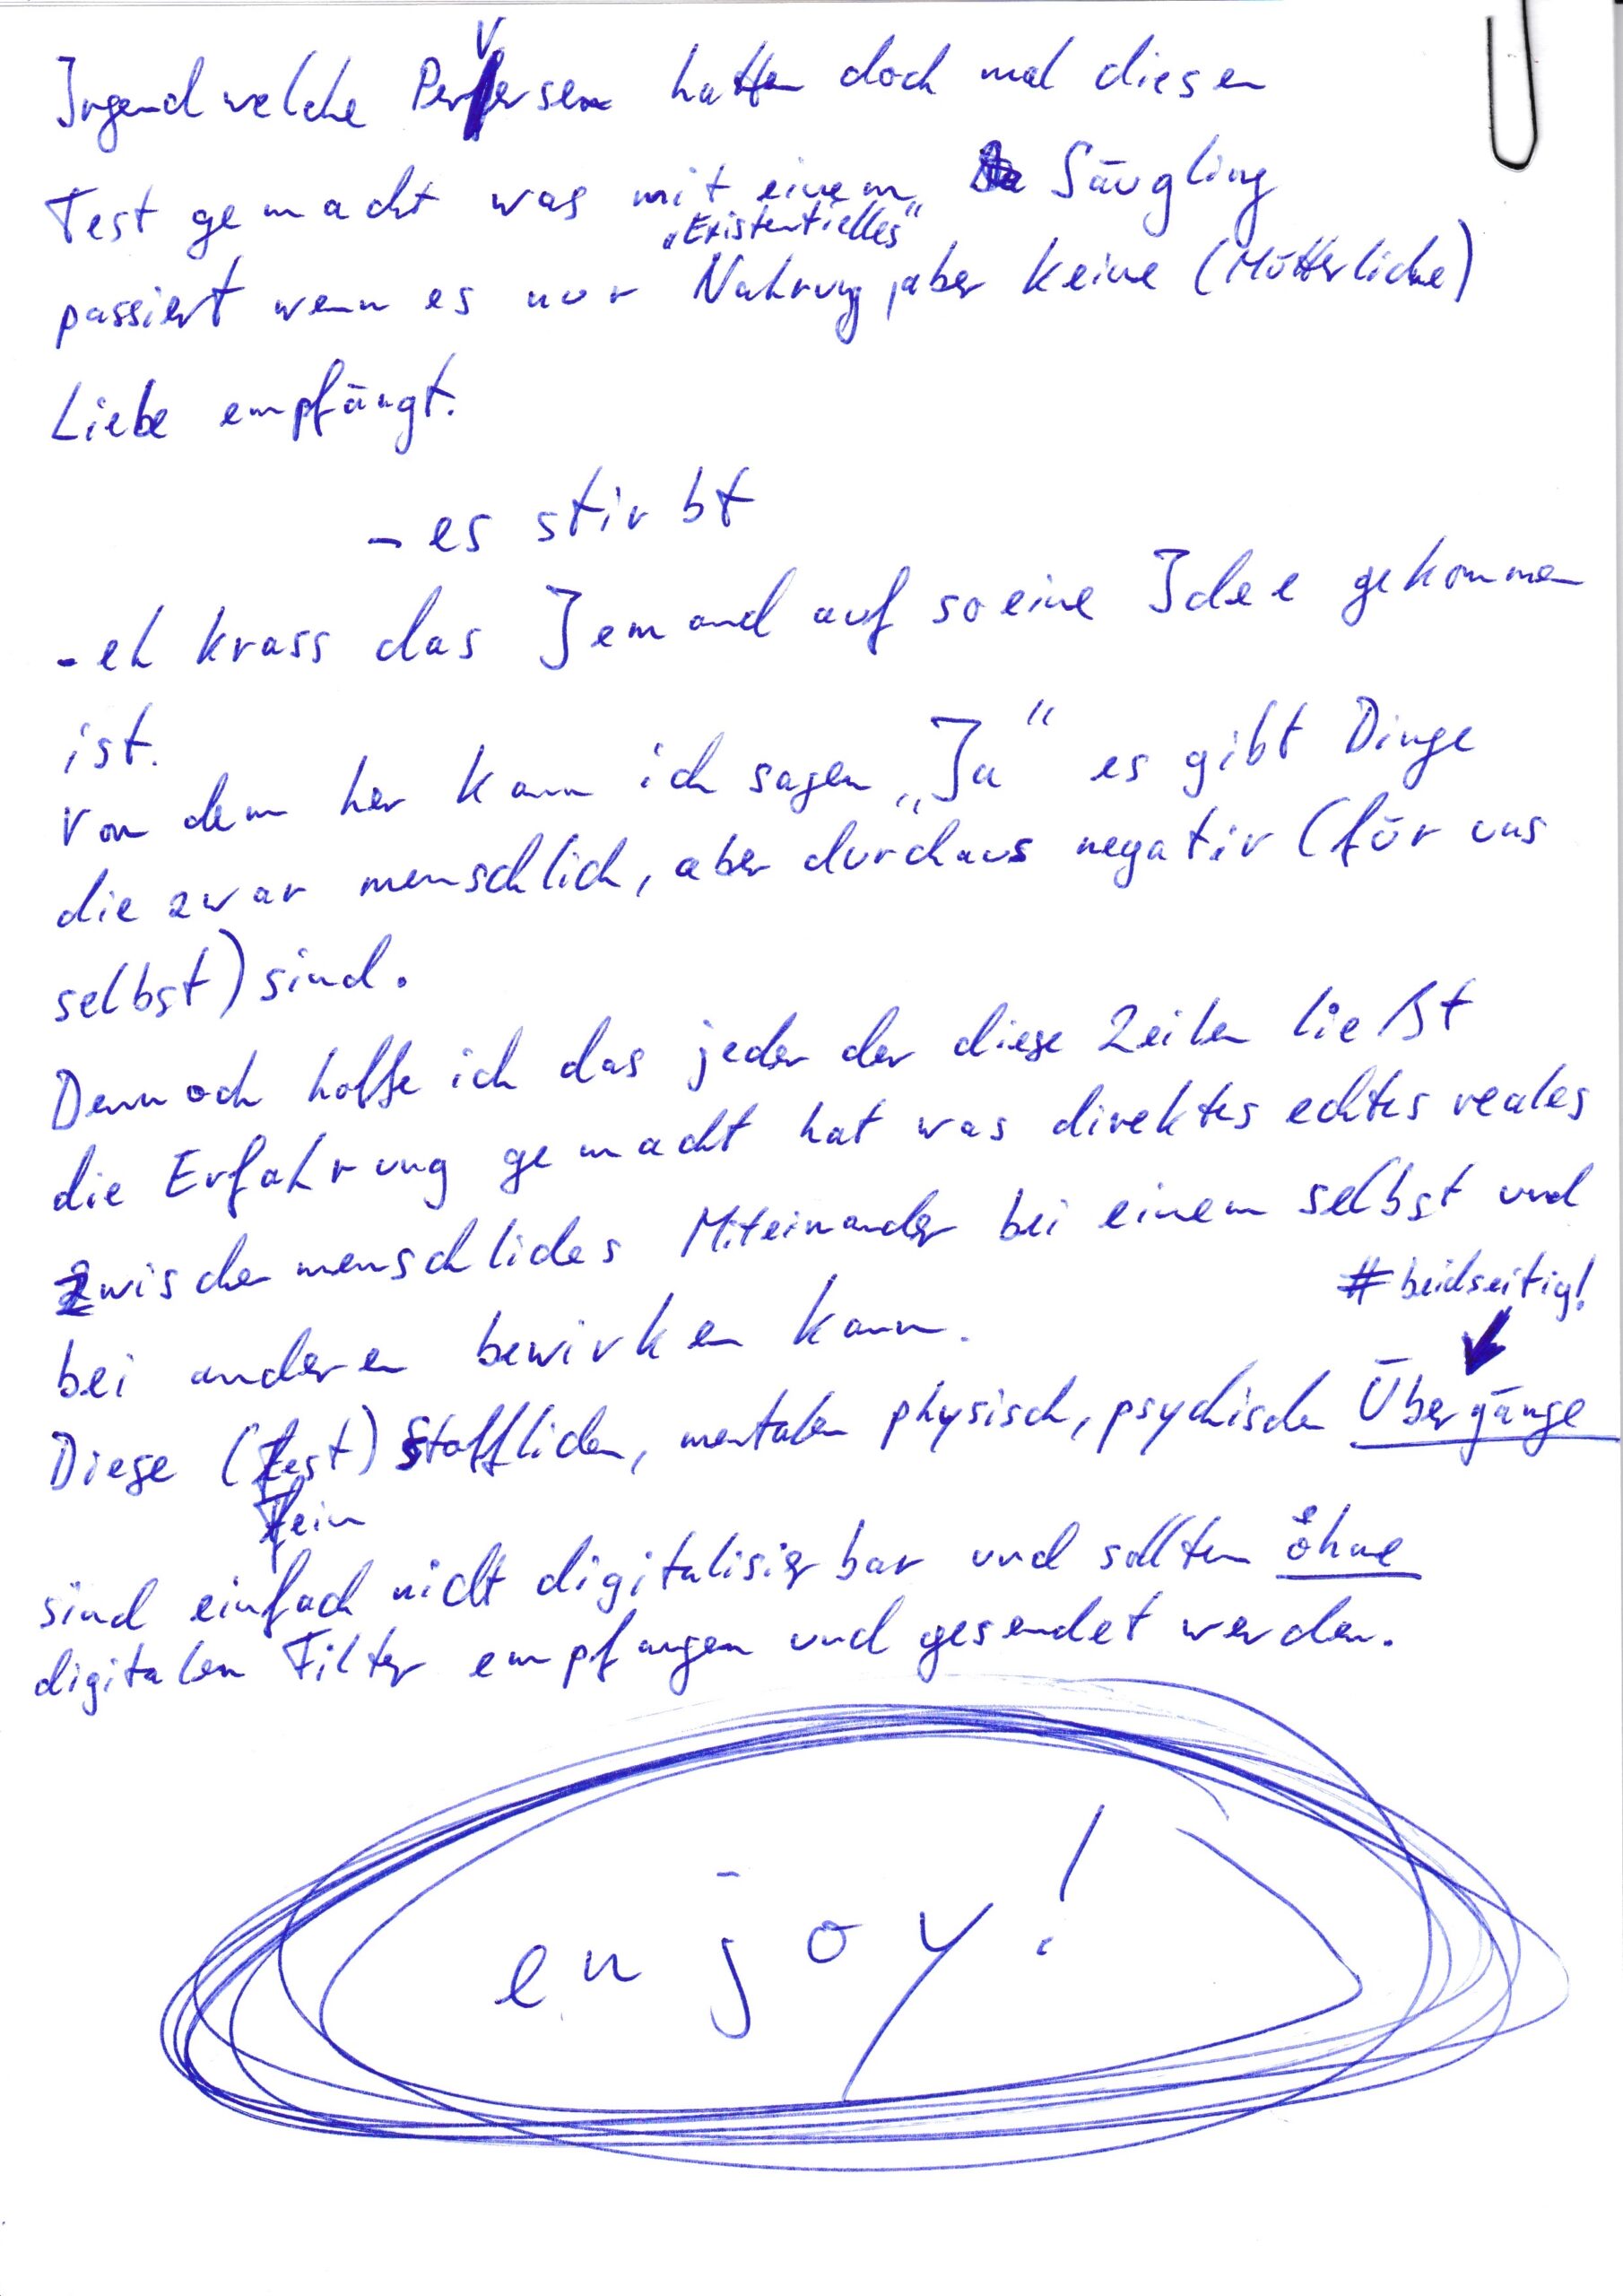 Irgendwelche Perversen hatten doch mal diesen
Test gemacht was mit einem Säugling
„Existentielles"
passiert wenn es nur Nahrung, aber keine (Mütterliche)
Liebe empfängt.
- es stirbt
- eh krass das Jemand auf so eine Idee gekommen
ist.
Von dem her kann ich sagen „Ja" es gibt Dinge
die zwar menschlich, aber durchaus negativ (für uns
selbst) sind.
Dennoch hoffe ich das jeder der diese Zeilen ließt
die Erfahrung gemacht hat was direktes echtes reales
zwischenmenschliches Miteinander bei einem selbst und
#beidseitig!
bei anderen bewirken kann.
Diese (fest) stofflichen, mentalen physisch, psychischen Übergänge
fein
sind einfach nicht digitalisierbar und sollten ohne
digitalen Filter empfangen und gesendet werden.
enjoy!